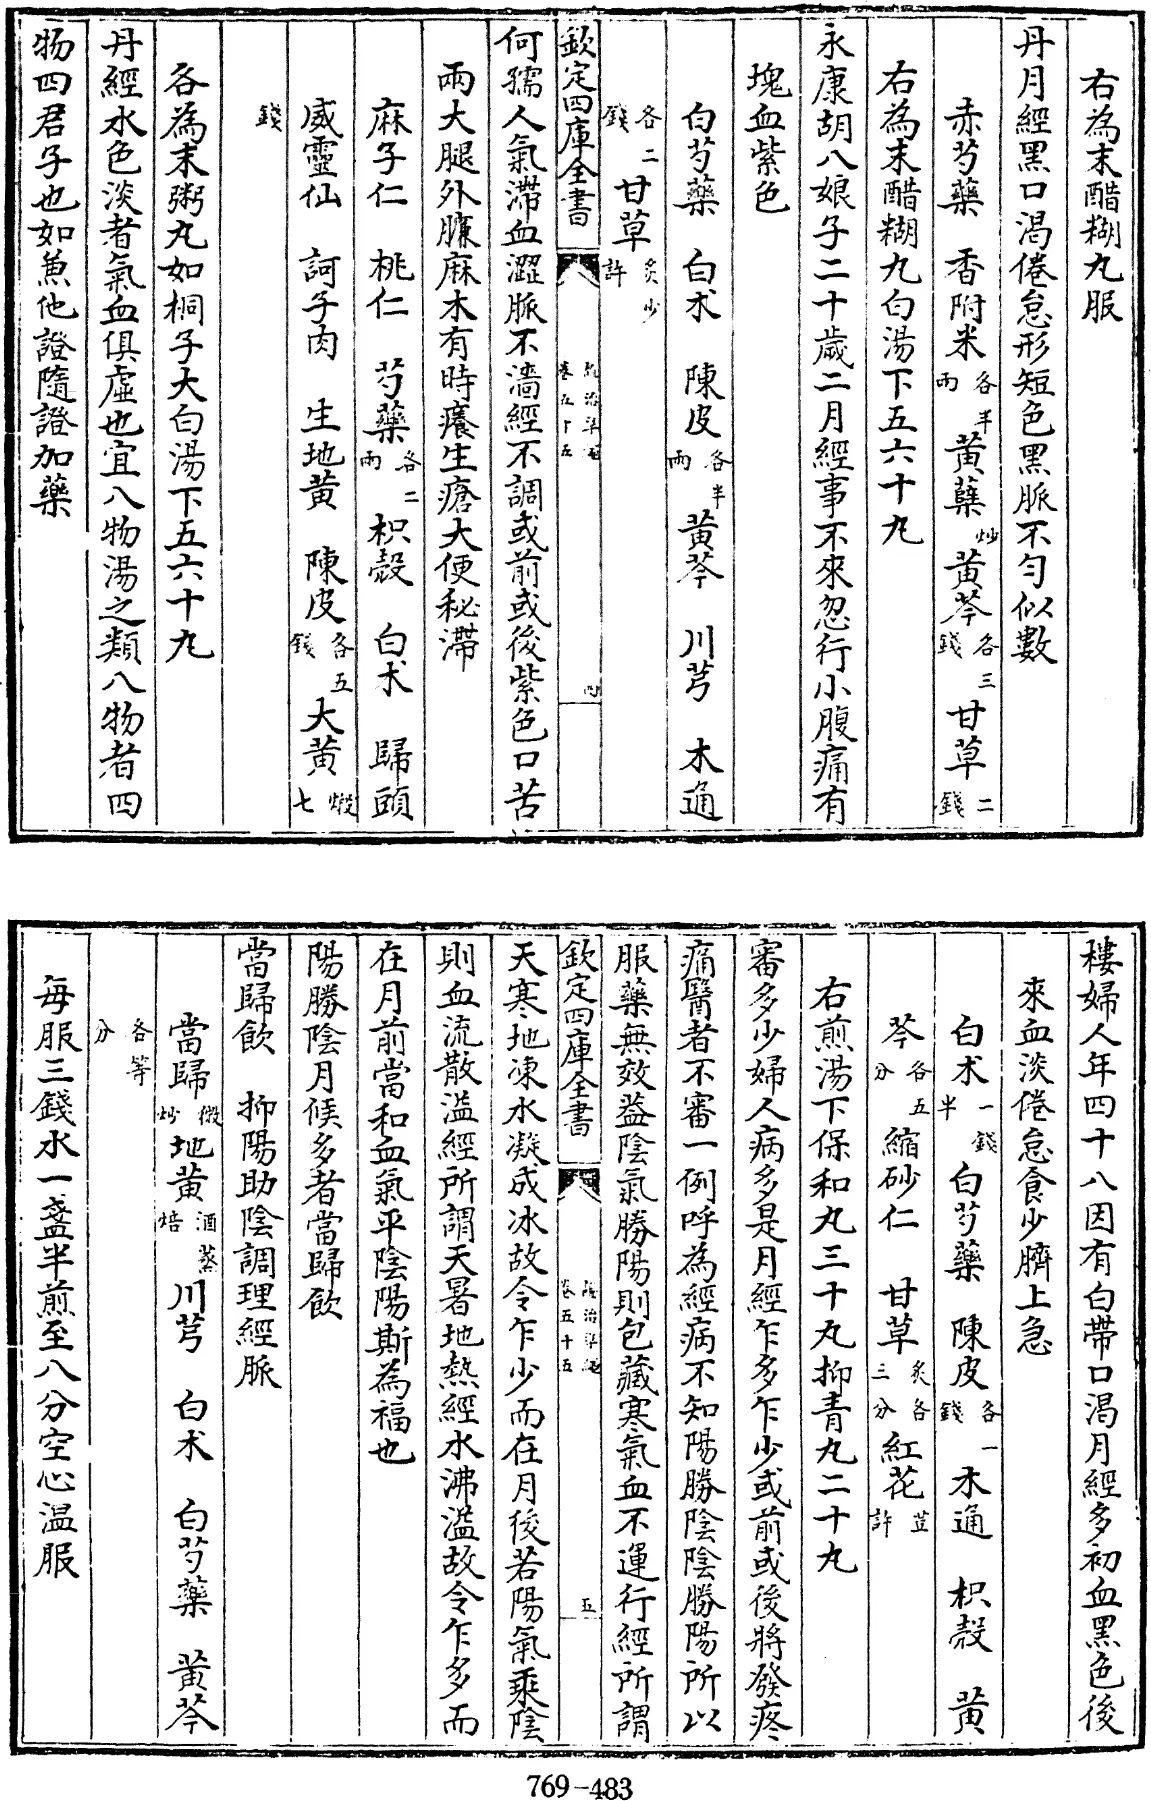 右為末醋糊丸服
丹月經黑口渴倦怠形短色黑脈不勻似數
赤芍藥　香附米各半兩　黃蘗炒　黃芩各三錢　甘草二錢
右為末醋糊丸白湯下五六十丸
永康胡八娘子二十歲二月經事不來忽行小腹痛有
塊血紫色
白芍藥　白朮　陳皮各半兩　黃芩　川芎　木通
各二錢　甘草炙少許
欽定四庫全書　證治準繩卷五十五　四
何孺人氣滯血澀脈不濇經不調或前或後紫色口苦
兩大腿外臁麻木有時癢生瘡大便秘滯
麻子仁　桃仁　芍藥各二兩　枳殼　白朮　歸頭
威靈仙　訶子肉　生地黃　陳皮各五錢　大黃煅七
錢
各為末粥丸如桐子大白湯下五六十丸
丹經水色淡者氣血俱虛也宜八物湯之類八物者四
物四君子也如兼他證隨證加藥
樓婦人年四十八因有白帶口渴月經多初血黑色後
來血淡倦怠食少臍上急
白朮一錢半　白芍藥　陳皮各一錢　木通　枳殼　黃
芩各五分　縮砂仁　甘草炙各三分　紅花豆許
右煎湯下保和丸三十丸抑青丸二十丸
審多少婦人病多是月經乍多乍少或前或後將發疼
痛醫者不審一例呼為經病不知陽勝陰陰勝陽所以
服藥無效益陰氣勝陽則包藏寒氣血不運行經所謂
欽定四庫全書　證治準繩卷五十五　五
天寒地凍水凝成冰故令乍少而在月後若陽氣乘陰
則血流散溢經所謂天暑地熱經水沸溢故令乍多而
在月前當和血氣平陰陽斯為福也
陽勝陰月候多者當歸飲
當歸飲　抑陽助陰調理經脈
當歸微炒　地黃酒蒸焙　川芎　白朮　白芍藥　黃芩
各等分
每服三錢水一盞半煎至八分空心溫服
769-483